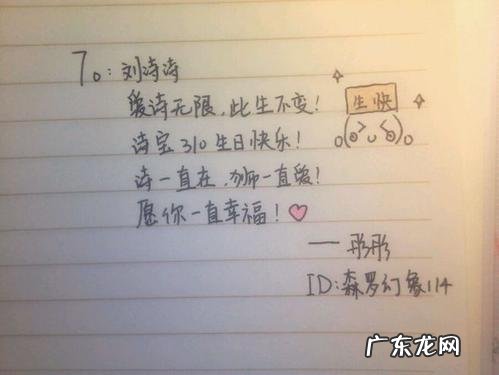 To:刘诗诗
爱诗无限,此生不变!
诗宝310生日快乐!
诗一直在,狮一直爱!
愿你一直幸福!
生快
——彤彤
ID:森罗幻象114
广东龙网